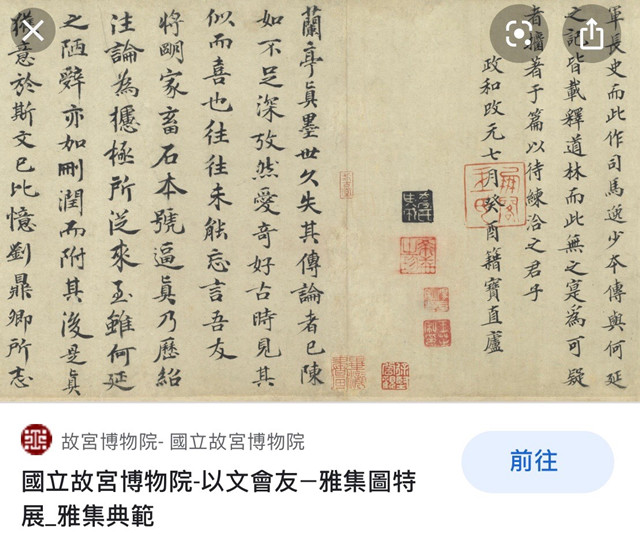 軍長史而此作司馬逸少本傳與何延
之記皆載釋道林而此無之寔為可疑
者牆著于篇以待練洽之君子
政和改元七月癸酉籍寶直廬
蘭亭真墨世久失其傳論者已陳
如不足深攷然愛奇好古時見其
似而喜也往往未能忘言吾友
將明家畜石本號逼真乃歷紹
注論為攄極所從來至雖何延
之陋辭亦如刪潤而附其後是真
意於斯文已比憶劉鼎卿所志
故宮博物院- 國立故宮博物院
國立故宮博物院-以文會友—雅集圖特
展_雅集典範
前往